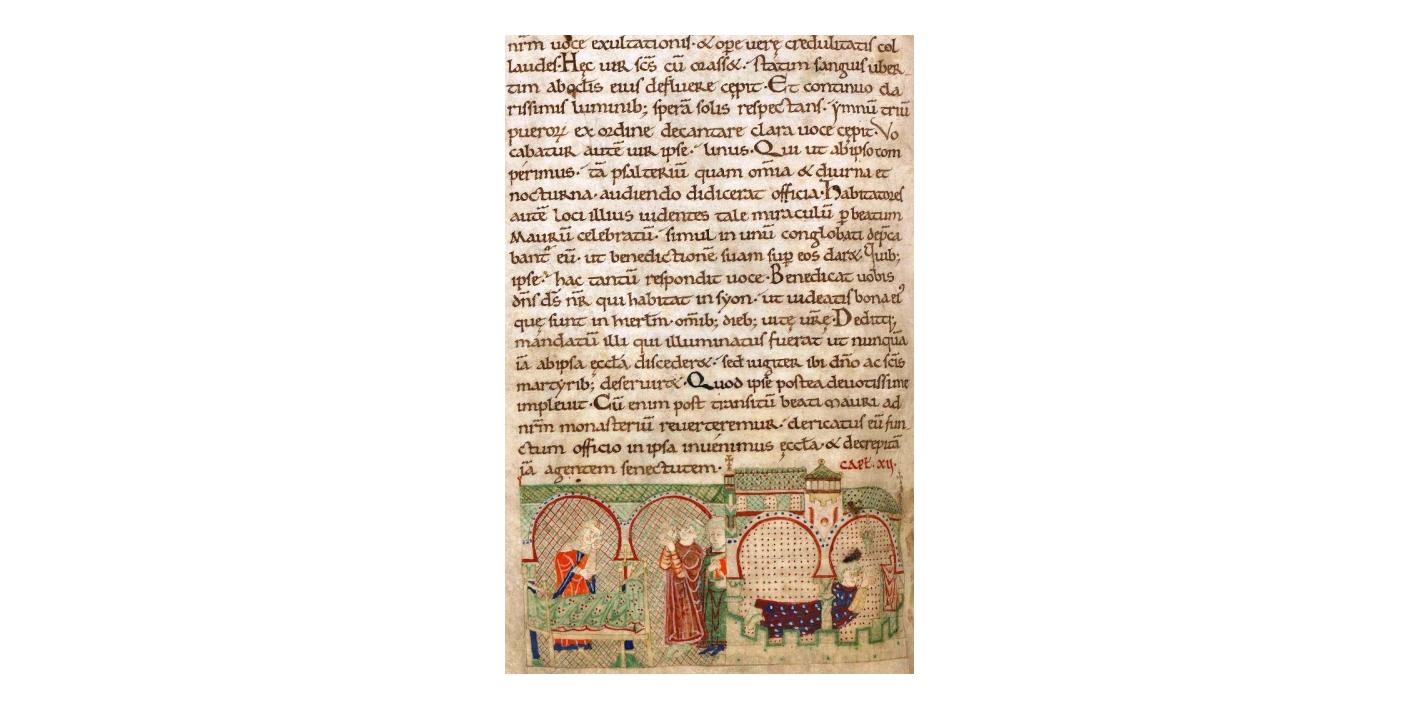 nr̄m uoce exultationis·& ope uerę credulitatis col
laudes·Hęc uir sc̄s cū orass&·́ statim sanguis uber
tim ab oc̄lis eius defluere cępit·Et continuo cla
rissimis luminib; sperā solis respectans·́ ymnū triū
pueroꝝ ex ordine decantare clara uoce cępit·Vo
cabatur autē uir ipse·́ linus·Qui ut ab ipso com
perimus·́ tā psalteriū quam om̄ia & diurna et
nocturna·audiendo didicerat officia·Habitatores
autē loci illius uidentes tale miraculū ꝑ beatum
Maurū celebratū·́ simul in unū conglobati dep̄ca
bant᷑ eū·ut benedictionē suam sup̄ eos dar&·Quib;
ipse·́ hac tantū respondit uoce·Benedicat uobis
dn̄s ds̄ nr̄ qui habitat in syon·́ ut uideatis bona eiꝰ
quę sunt in hierl̄m·om̄ib; dieb; uitę ur̄ę·Deditq;
mandatū illi qui illuminatus fuerat ut nunquā
iā ab ipsa ęccl̄a disceder&·́ sed iugiter ibi dn̄o ac sc̄is
martyrib; deseruir&·Quod ipse postea deuotissime
impleuit·Cū enim post transitū beati mauri ad
nr̄m monasteriū reuerteremur·́ clericatus eū fun
ctum officio in ipsa inuenimus ęccl̄a·& decrepitā
iā agentem senectutem·
cap̄t·xij·